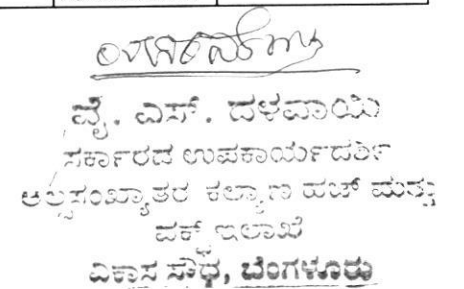 ವೈ. ಎಸ್. ದಳವಾಯಿ
ಸರ್ಕಾರದ ಉಪಕಾರ್ಯದರ್ಶಿ
ಅಲ್ಪಸಂಖ್ಯಾತರ ಕಲ್ಯಾಣ ಹಜ್ ಮತ್ತು
ವಕ್ಫ್ ಇಲಾಖೆ
ವಿಕಾಸ ಸೌಧ, ಬೆಂಗಳೂರು